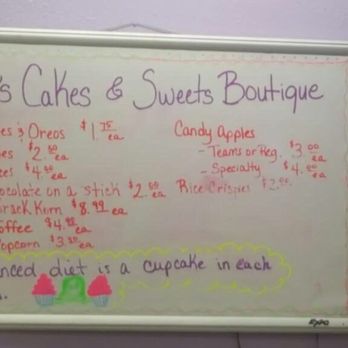 's Cakes & Sweets Boutique
es & Oreos $1.75 ea
es $2.50 ea
es $4.50 ea
ocolate on a stick $2.50 ea
rack Korn $8.99 ea
offee $4.99 ea
opcorn $3.50 ea
Candy Apples
- Teams or Reg. $3.00 ea
- Specialty $4.00 ea
Rice Crispies $2.00
nced diet is a cupcake in each
EXPO